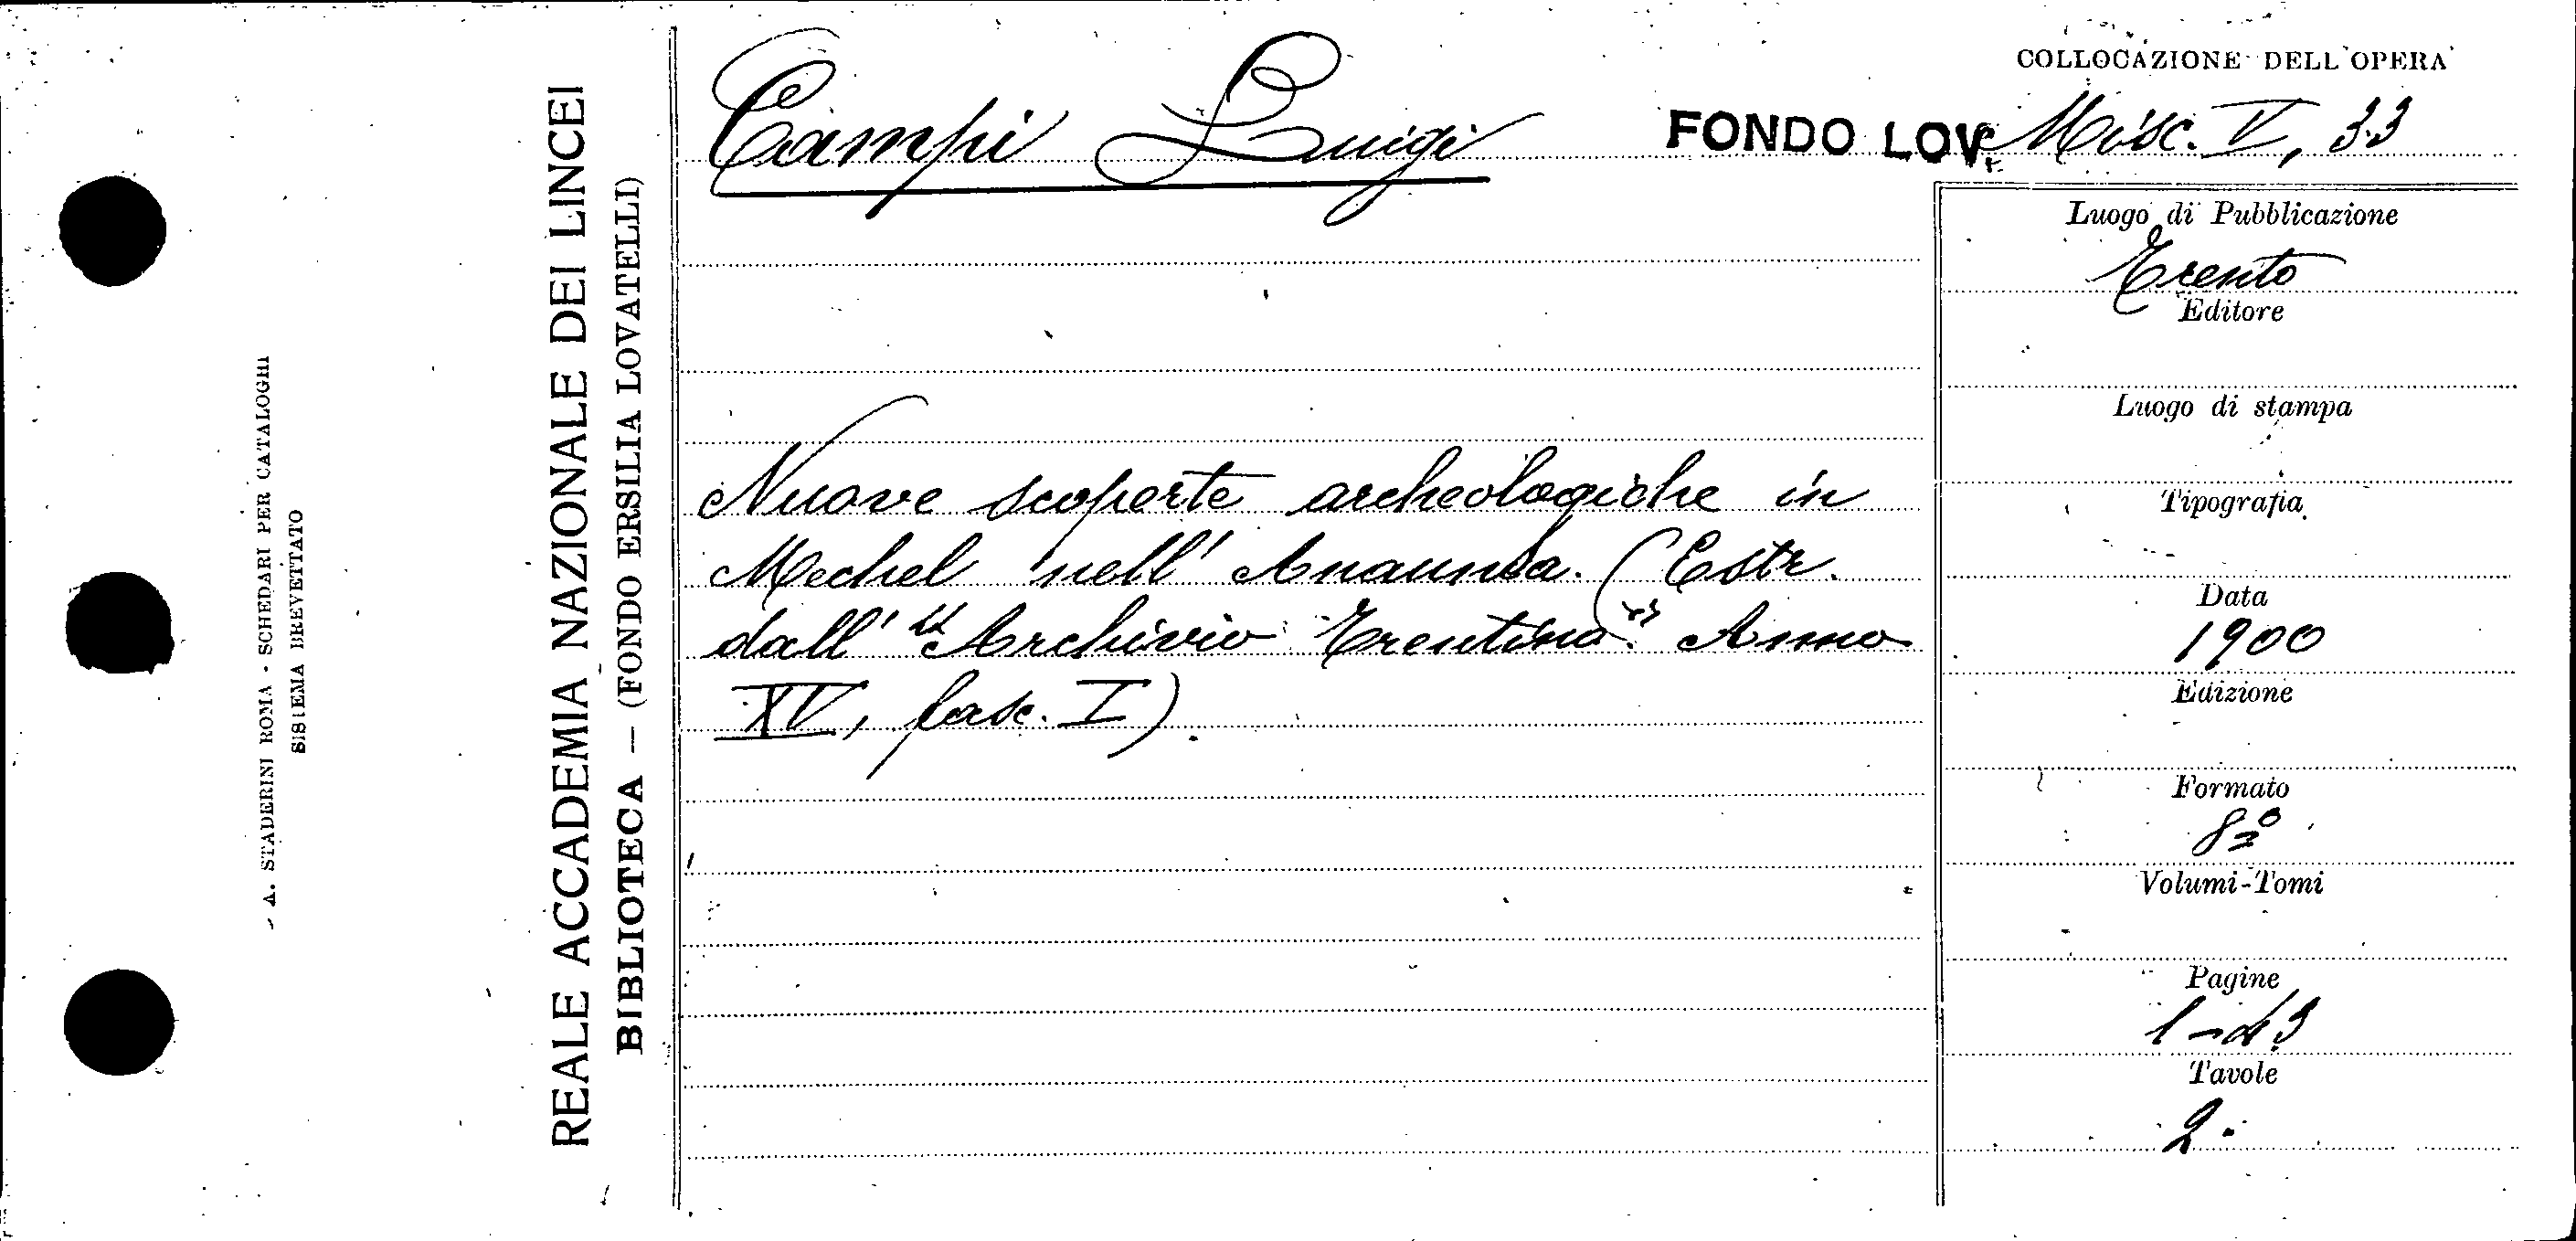 COLLOCAZIONE DELL'OPERA
Campi Luigi
FONDO LOV. Misc. V, 33
Nuove scoperte archeologiche in
Mechel nell'Anaunia. (Estr.
dall'"Archivio Trentino" Anno
XV, fasc. I).
Luogo di Pubblicazione
Trento
Editore
Luogo di stampa
Tipografia
Data
1900
Edizione
Formato
8º
Volumi-Tomi
Pagine
Tavole
2.
REALE ACCADEMIA NAZIONALE DEI LINCEI
BIBLIOTECA — (FONDO ERSILIA LOVATELLI)
A. STADERINI ROMA - SCHEDARI PER CATALOGHI
SISTEMA BREVETTATO